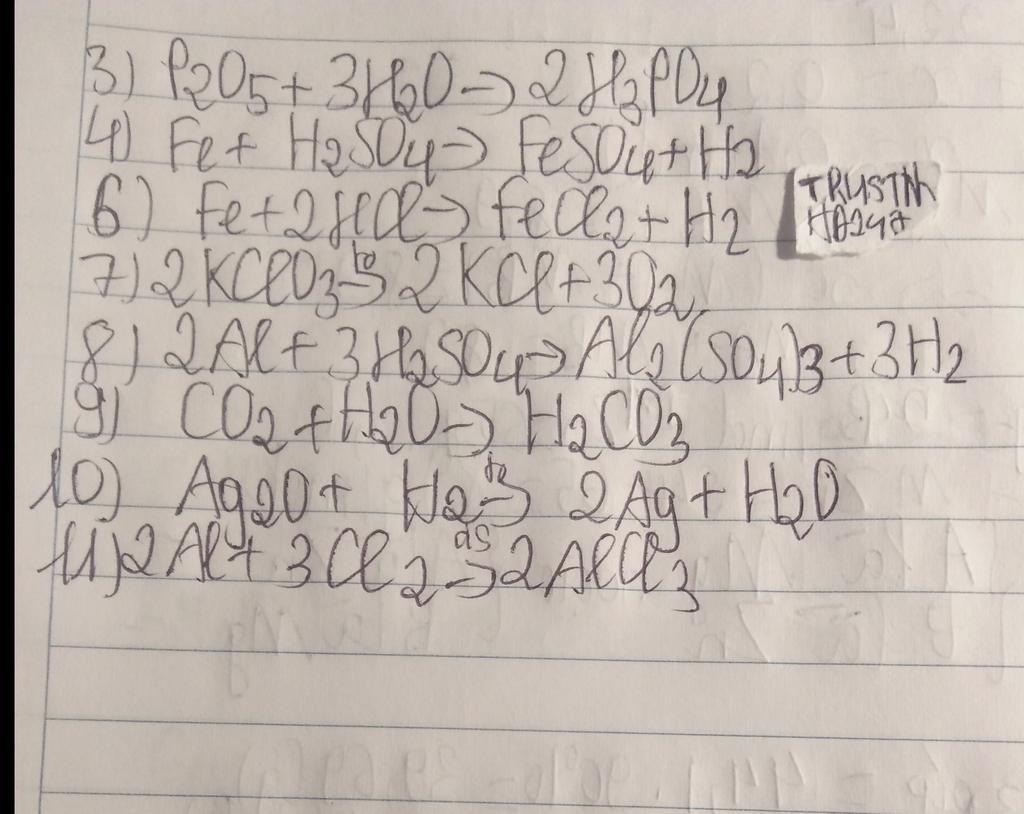 3) P2O5 + 3H2O → 2H3PO4
4) Fe + H2SO4 → FeSO4 + H2
6) Fe + 2HCl → FeCl2 + H2
TRUSTNN
7) 2KClO3 to→ 2KCl + 3O2
8) 2Al + 3H2SO4 → Al2(SO4)3 + 3H2
9) CO2 + H2O → H2CO3
10) Ag2O + H2 to→ 2Ag + H2O
11) 2Al + 3Cl2 as→ 2AlCl3